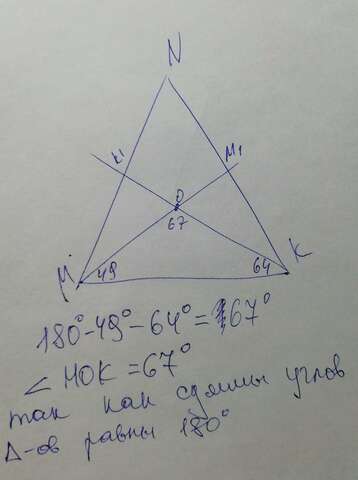 N
K1 M1
O
67
M 49 64 K
180°-49°-64°=67°
∠ MOK =67°
так как суммы углов
Δ-ов равны 180°